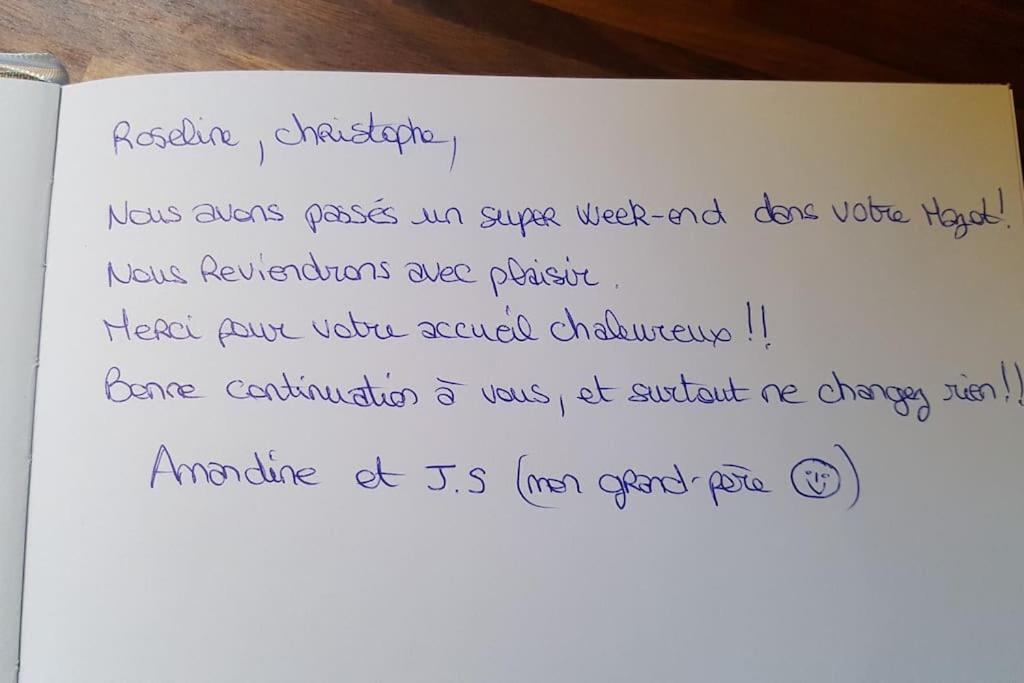 Roseline, Christophe,
Nous avons passés un super week-end dans votre Mazot!
Nous Reviendrons avec plaisir.
Merci pour votre accueil chaleureux !!
Bonne continuation à vous, et surtout ne changez rien!!
Amandine et J.S (mon grand-père ☺)